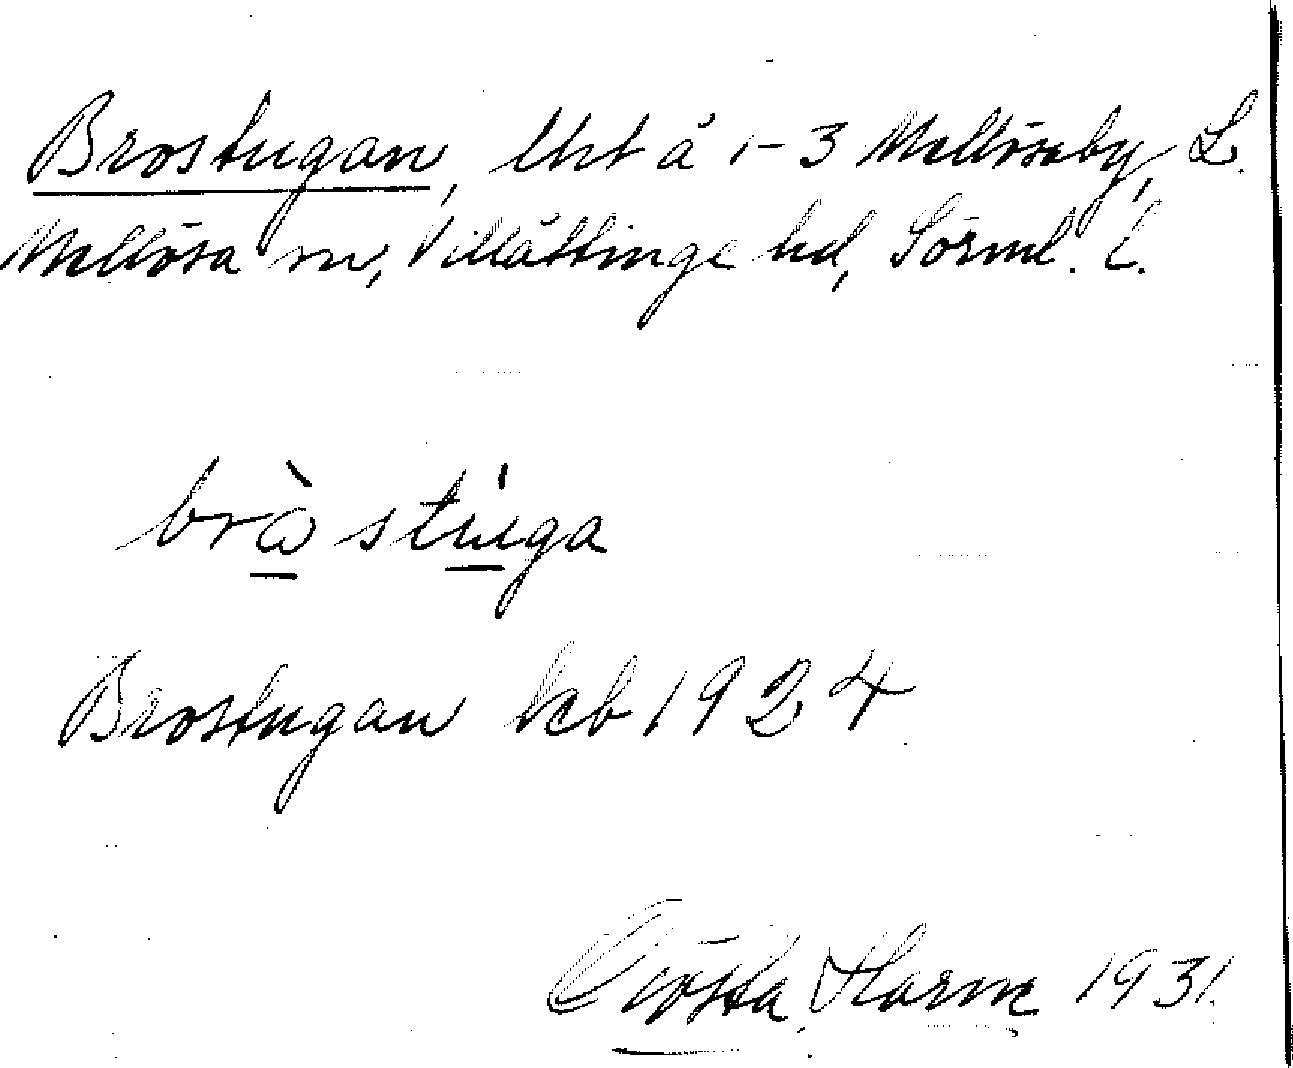 Brostugan, lht å 1-3 Mellösaby, L.
Mellösa sn, Villåttinge hd, Sörml. l.
bràstùga
Brostugan kb 1924
Gösta 1931.